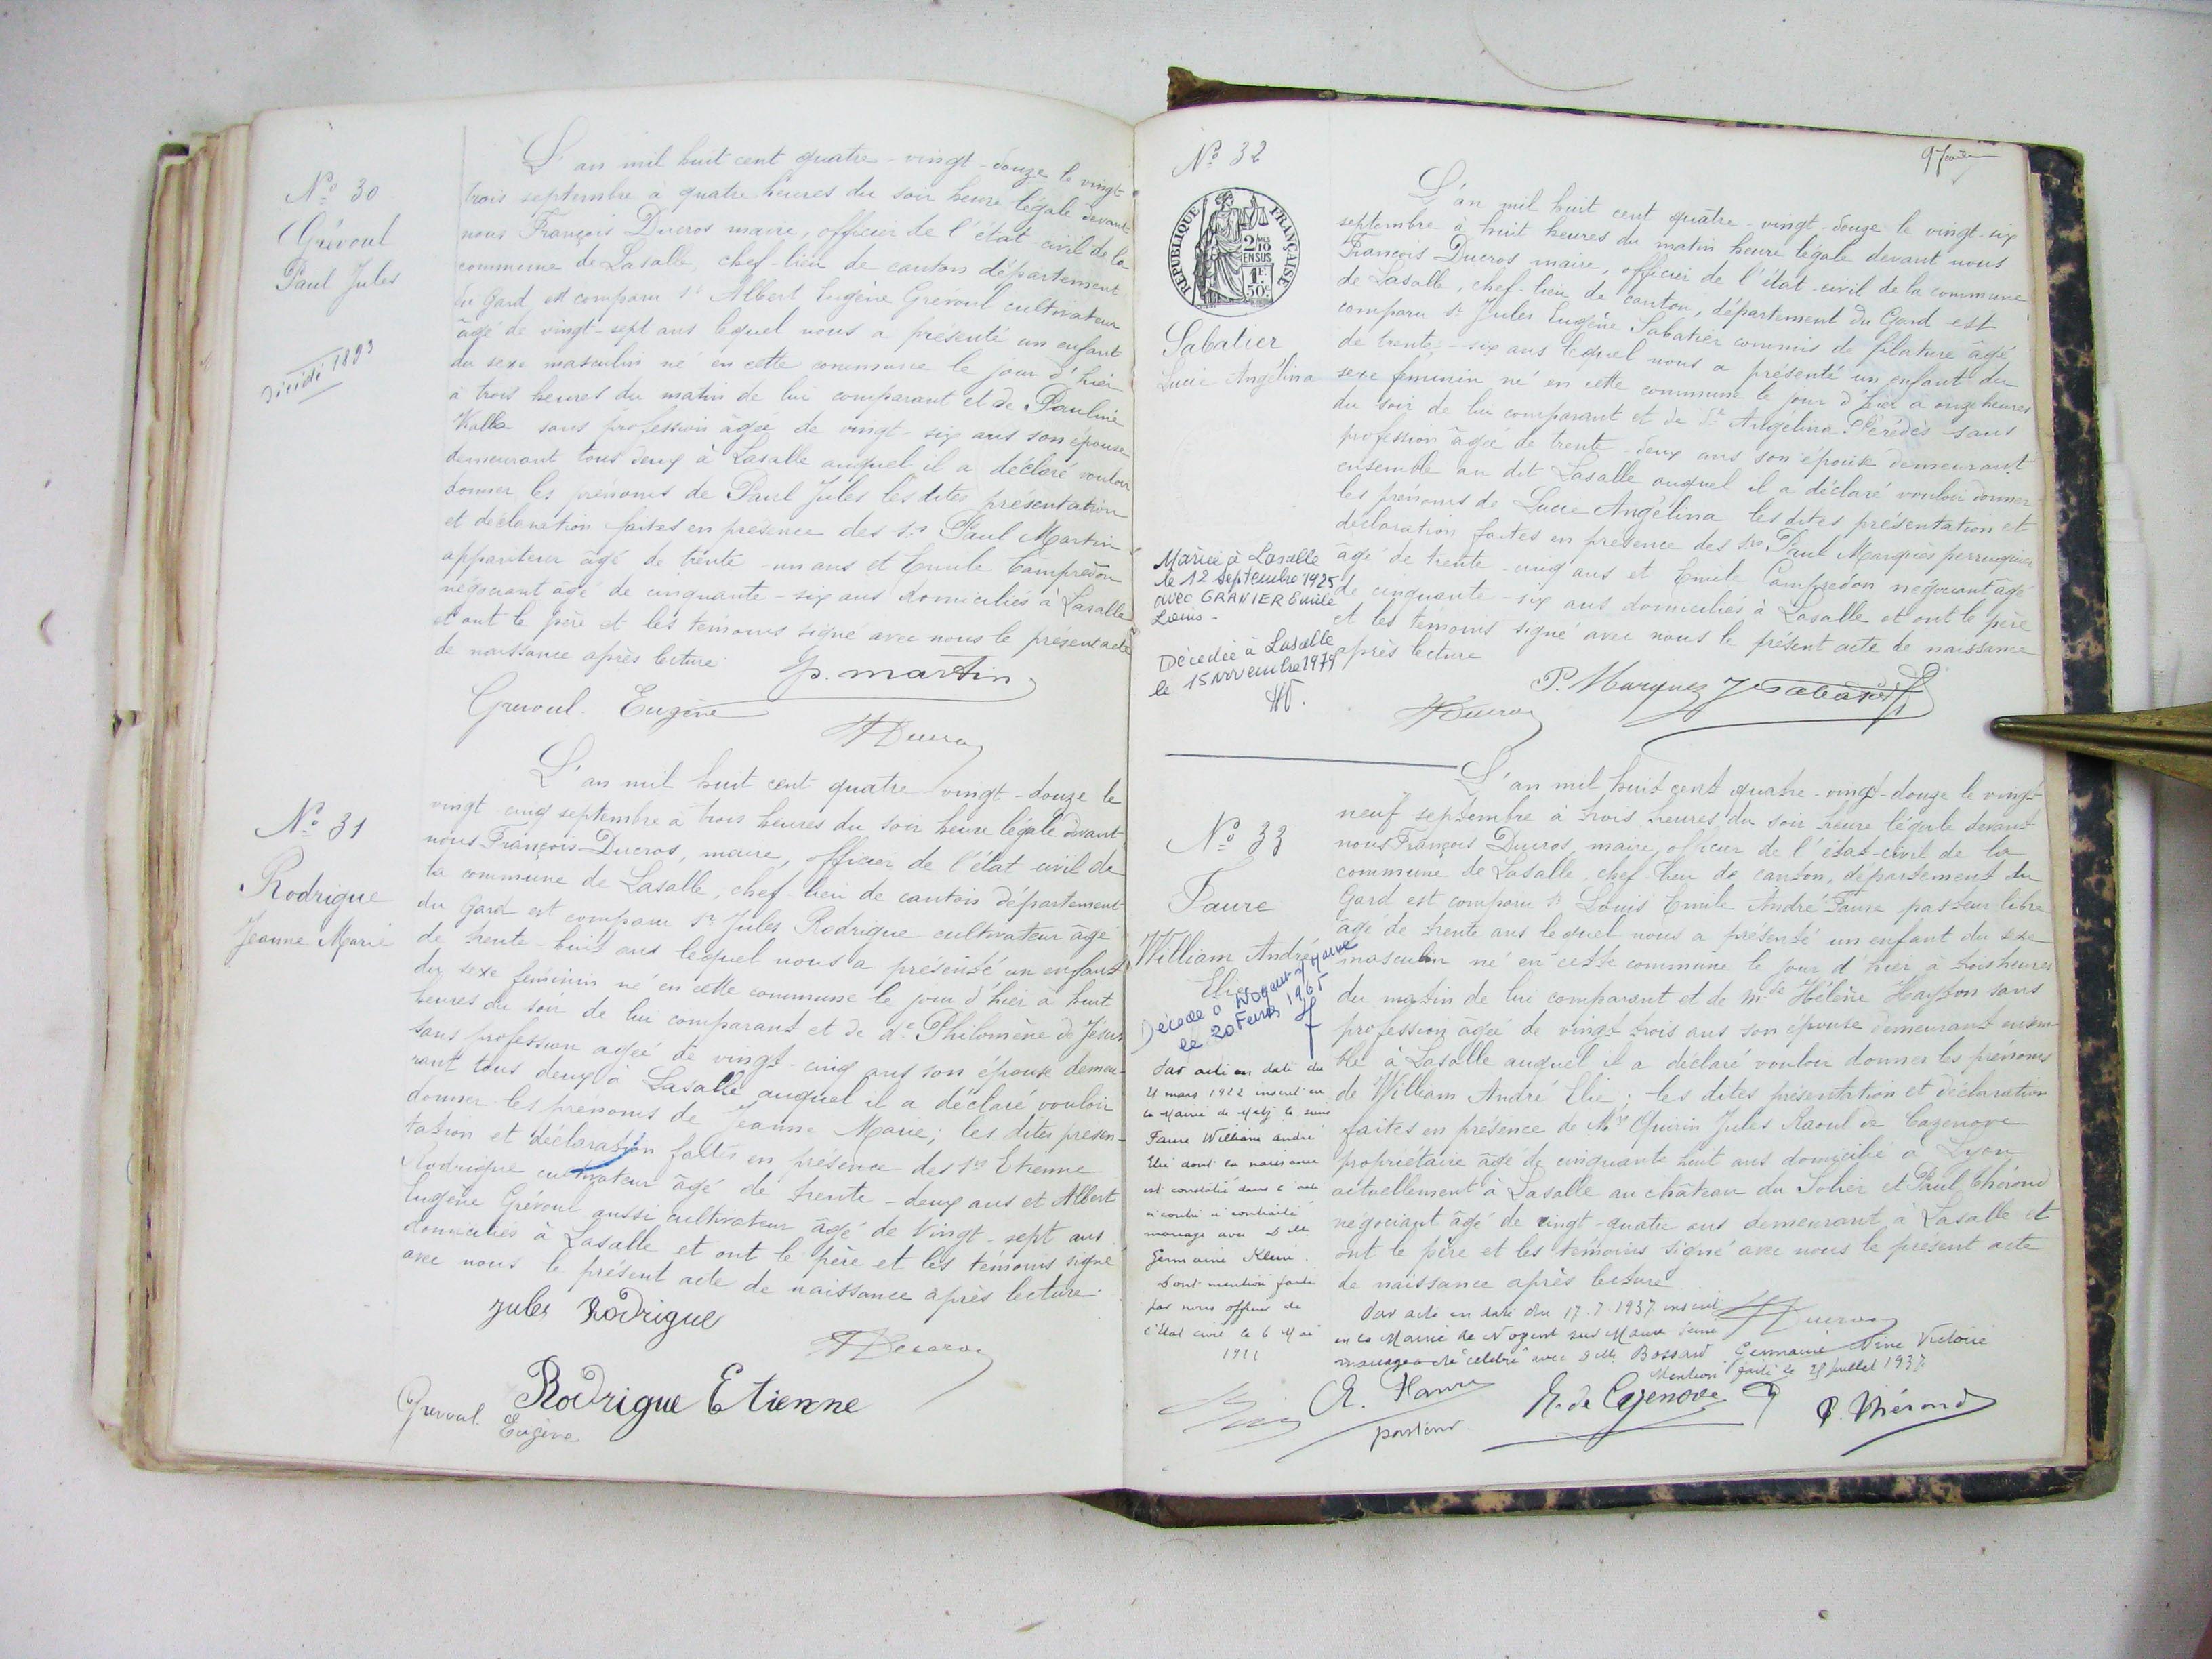 N° 30
Grévoul
Paul Jules
Décédé 1893
L'an mil huit cent quatre-vingt-douze le vingt
trois septembre à quatre heures du soir heure légale devant
nous François Ducros maire, officier de l'état-civil de la
commune de Lasalle, chef-lieu de canton département
du Gard est comparu sr Albert Eugène Grévoul cultivateur
âgé de vingt-sept ans lequel nous a présenté un enfant
du sexe masculin né en cette commune le jour d'hier
à trois heures du matin de lui comparant et de Pauline
sans profession âgée de vingt-six ans son épouse
demeurant tous deux à Lasalle auquel il a déclaré vouloir
donner les prénoms de Paul Jules les dites présentation
et déclaration faites en présence des srs Paul Martin
appariteur âgé de trente-un ans et Emile Campredon
négociant âgé de cinquante-six ans domiciliés à Lasalle
et ont le père et les témoins signé avec nous le présent acte
de naissance après lecture.
p. martin
Grevoul Eugène
F Ducros
N° 31
Rodrigue
Jeanne Marie
L'an mil huit cent quatre vingt-douze le
vingt-cinq septembre à trois heures du soir heure légale devant
nous François Ducros, maire, officier de l'état-civil de
la commune de Lasalle, chef-lieu de canton département
du Gard est comparu sr Jules Rodrigue cultivateur âgé
de trente-huit ans lequel nous a présenté un enfant
du sexe féminin né en cette commune le jour d'hier à huit
heures du soir de lui comparant et de de Philomène de Jésus
sans profession âgée de vingt-cinq ans son épouse demeu-
rant tous deux à Lasalle auquel il a déclaré vouloir
donner les prénoms de Jeanne Marie; les dites présen-
tation et déclaration faites en présence des srs Etienne
Rodrigue cultivateur âgé de trente-deux ans et Albert
Eugène Grévoul aussi cultivateur âgé de vingt-sept ans
domiciliés à Lasalle et ont le père et les témoins signé
avec nous le présent acte de naissance après lecture.
Jules Rodrigue
F Ducros
Rodrigue Etienne
Grevoul Eugène
N° 32
RÉPUBLIQUE FRANÇAISE
2/10 EN SUS
1F 50c
Sabatier
Lucie Angélina
Mariée à Lasalle
le 12 septembre 1925
avec GRANIER Emile
Louis-
Décédée à Lasalle
le 15 novembre 1979
L'an mil huit cent quatre-vingt-douze le vingt-six
septembre à huit heures du matin heure légale devant nous
François Ducros maire, officier de l'état-civil de la commune
de Lasalle, chef-lieu de canton, département du Gard est
comparu sr Jules Eugène Sabatier commis de filature âgé
de trente-six ans lequel nous a présenté un enfant du
sexe féminin né en cette commune le jour d'hier à onze heures
du soir de lui comparant et de de Angélina sans
profession âgée de trente-deux ans son épouse demeurant
ensemble au dit Lasalle auquel il a déclaré vouloir donner
les prénoms de Lucie Angélina les dites présentation et
déclaration faites en présence des srs Paul Marquès perruquier
âgé de trente-cinq ans et Emile Campredon négociant âgé
de cinquante-six ans domiciliés à Lasalle et ont le père
et les témoins signé avec nous le présent acte de naissance
après lecture
P. Marquez J Sabatier
F Ducros
N° 33
Faure
William André
Elie
Décédé à Nogent s/ Marne
le 20 Février 1965
Par acte en date du
21 mars 1922 inscrit en
la Mairie de le sieur
Faure William André
Elie dont la naissance
est constatée dans l'acte
ci contre a contracté
mariage avec Delle
Germaine
Dont mention faite
par nous officier de
l'Etat civil le 6 Mai
1922
L'an mil huit cent quatre-vingt-douze le vingt-
neuf septembre à trois heures du soir heure légale devant
nous François Ducros, maire, officier de l'état-civil de la
commune de Lasalle, chef-lieu de canton, département du
Gard est comparu sr Louis Emile André Faure pasteur libre
âgé de trente ans lequel nous a présenté un enfant du sexe
masculin né en cette commune le jour d'hier à trois heures
du matin de lui comparant et de Mme Hélène sans
profession âgée de vingt-trois ans son épouse demeurant ensem-
ble à Lasalle auquel il a déclaré vouloir donner les prénoms
de William André Elie; les dites présentation et déclaration
faites en présence de Mrs Quirin Jules Raoul de Cazenove
propriétaire âgé de cinquante huit ans domicilié à Lyon
actuellement à Lasalle au château du Solier et Paul Thérond
négociant âgé de vingt-quatre ans demeurant à Lasalle et
ont le père et les témoins signé avec nous le présent acte
de naissance après lecture
F Ducros
Par acte en date du 17.7.1937 inscrit
en la Mairie de Nogent sur Marne Seine
mariage a été célébré avec Delle Bossard Germaine Aline Victoire
Mention faite le juillet 1937
A. Faure
pasteur
R. de Cazenove
P. Thérond